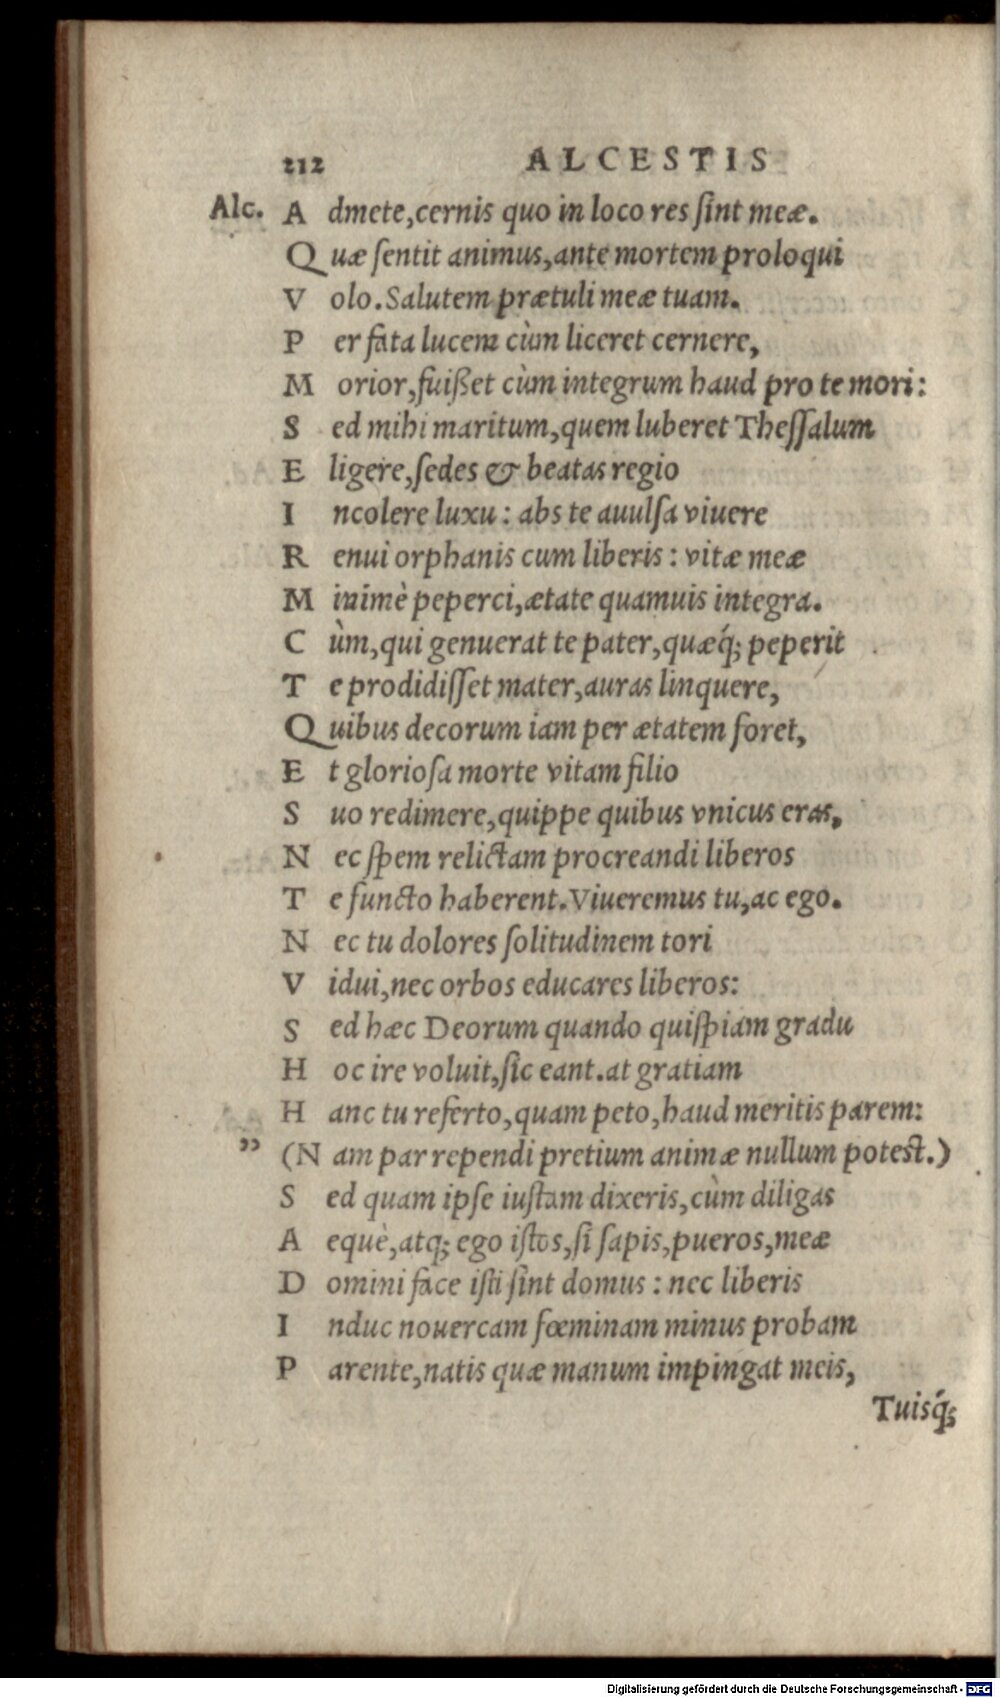 212 ALCESTIS
Alc. Admete,cernis quo in loco res ſint meæ.
Quæ ſentit animus,ante mortem proloqui
Volo.Salutem prætuli meæ tuam.
Per fata lucem cùm liceret cernere,
Morior,fuißet cùm integrum haud pro te mori:
Sed mihi maritum,quem luberet Theſſalum
Eligere,ſedes & beatas regio
Incolere luxu : abs te auulſa viuere
Renui orphanis cum liberis : vitæ meæ
Minimè peperci,ætate quamuis integra.
Cùm,qui genuerat te pater,quæq́; peperit
Te prodidiſſet mater,auras linquere,
Quibus decorum iam per ætatem foret,
Et glorioſa morte vitam filio
Suo redimere,quippe quibus vnicus eras,
Nec ſpem relictam procreandi liberos
Te functo haberent.Viueremus tu,ac ego.
Nec tu dolores ſolitudinem tori
Vidui,nec orbos educares liberos:
Sed hæc Deorum quando quiſpiam gradu
Hoc ire voluit,ſic eant.at gratiam
Hanc tu referto,quam peto,haud meritis parem:
” (Nam par rependi pretium animæ nullum poteſt.)
Sed quam ipſe iuſtam dixeris,cùm diligas
Aequè,atq; ego iſtos,ſi ſapis,pueros,meæ
Domini face iſti ſint domus : nec liberis
Induc nouercam fœminam minus probam
Parente,natis quæ manum impingat meis,
Tuisq́;
Digitalisierung gefördert durch die Deutsche Forschungsgemeinschaft - DFG